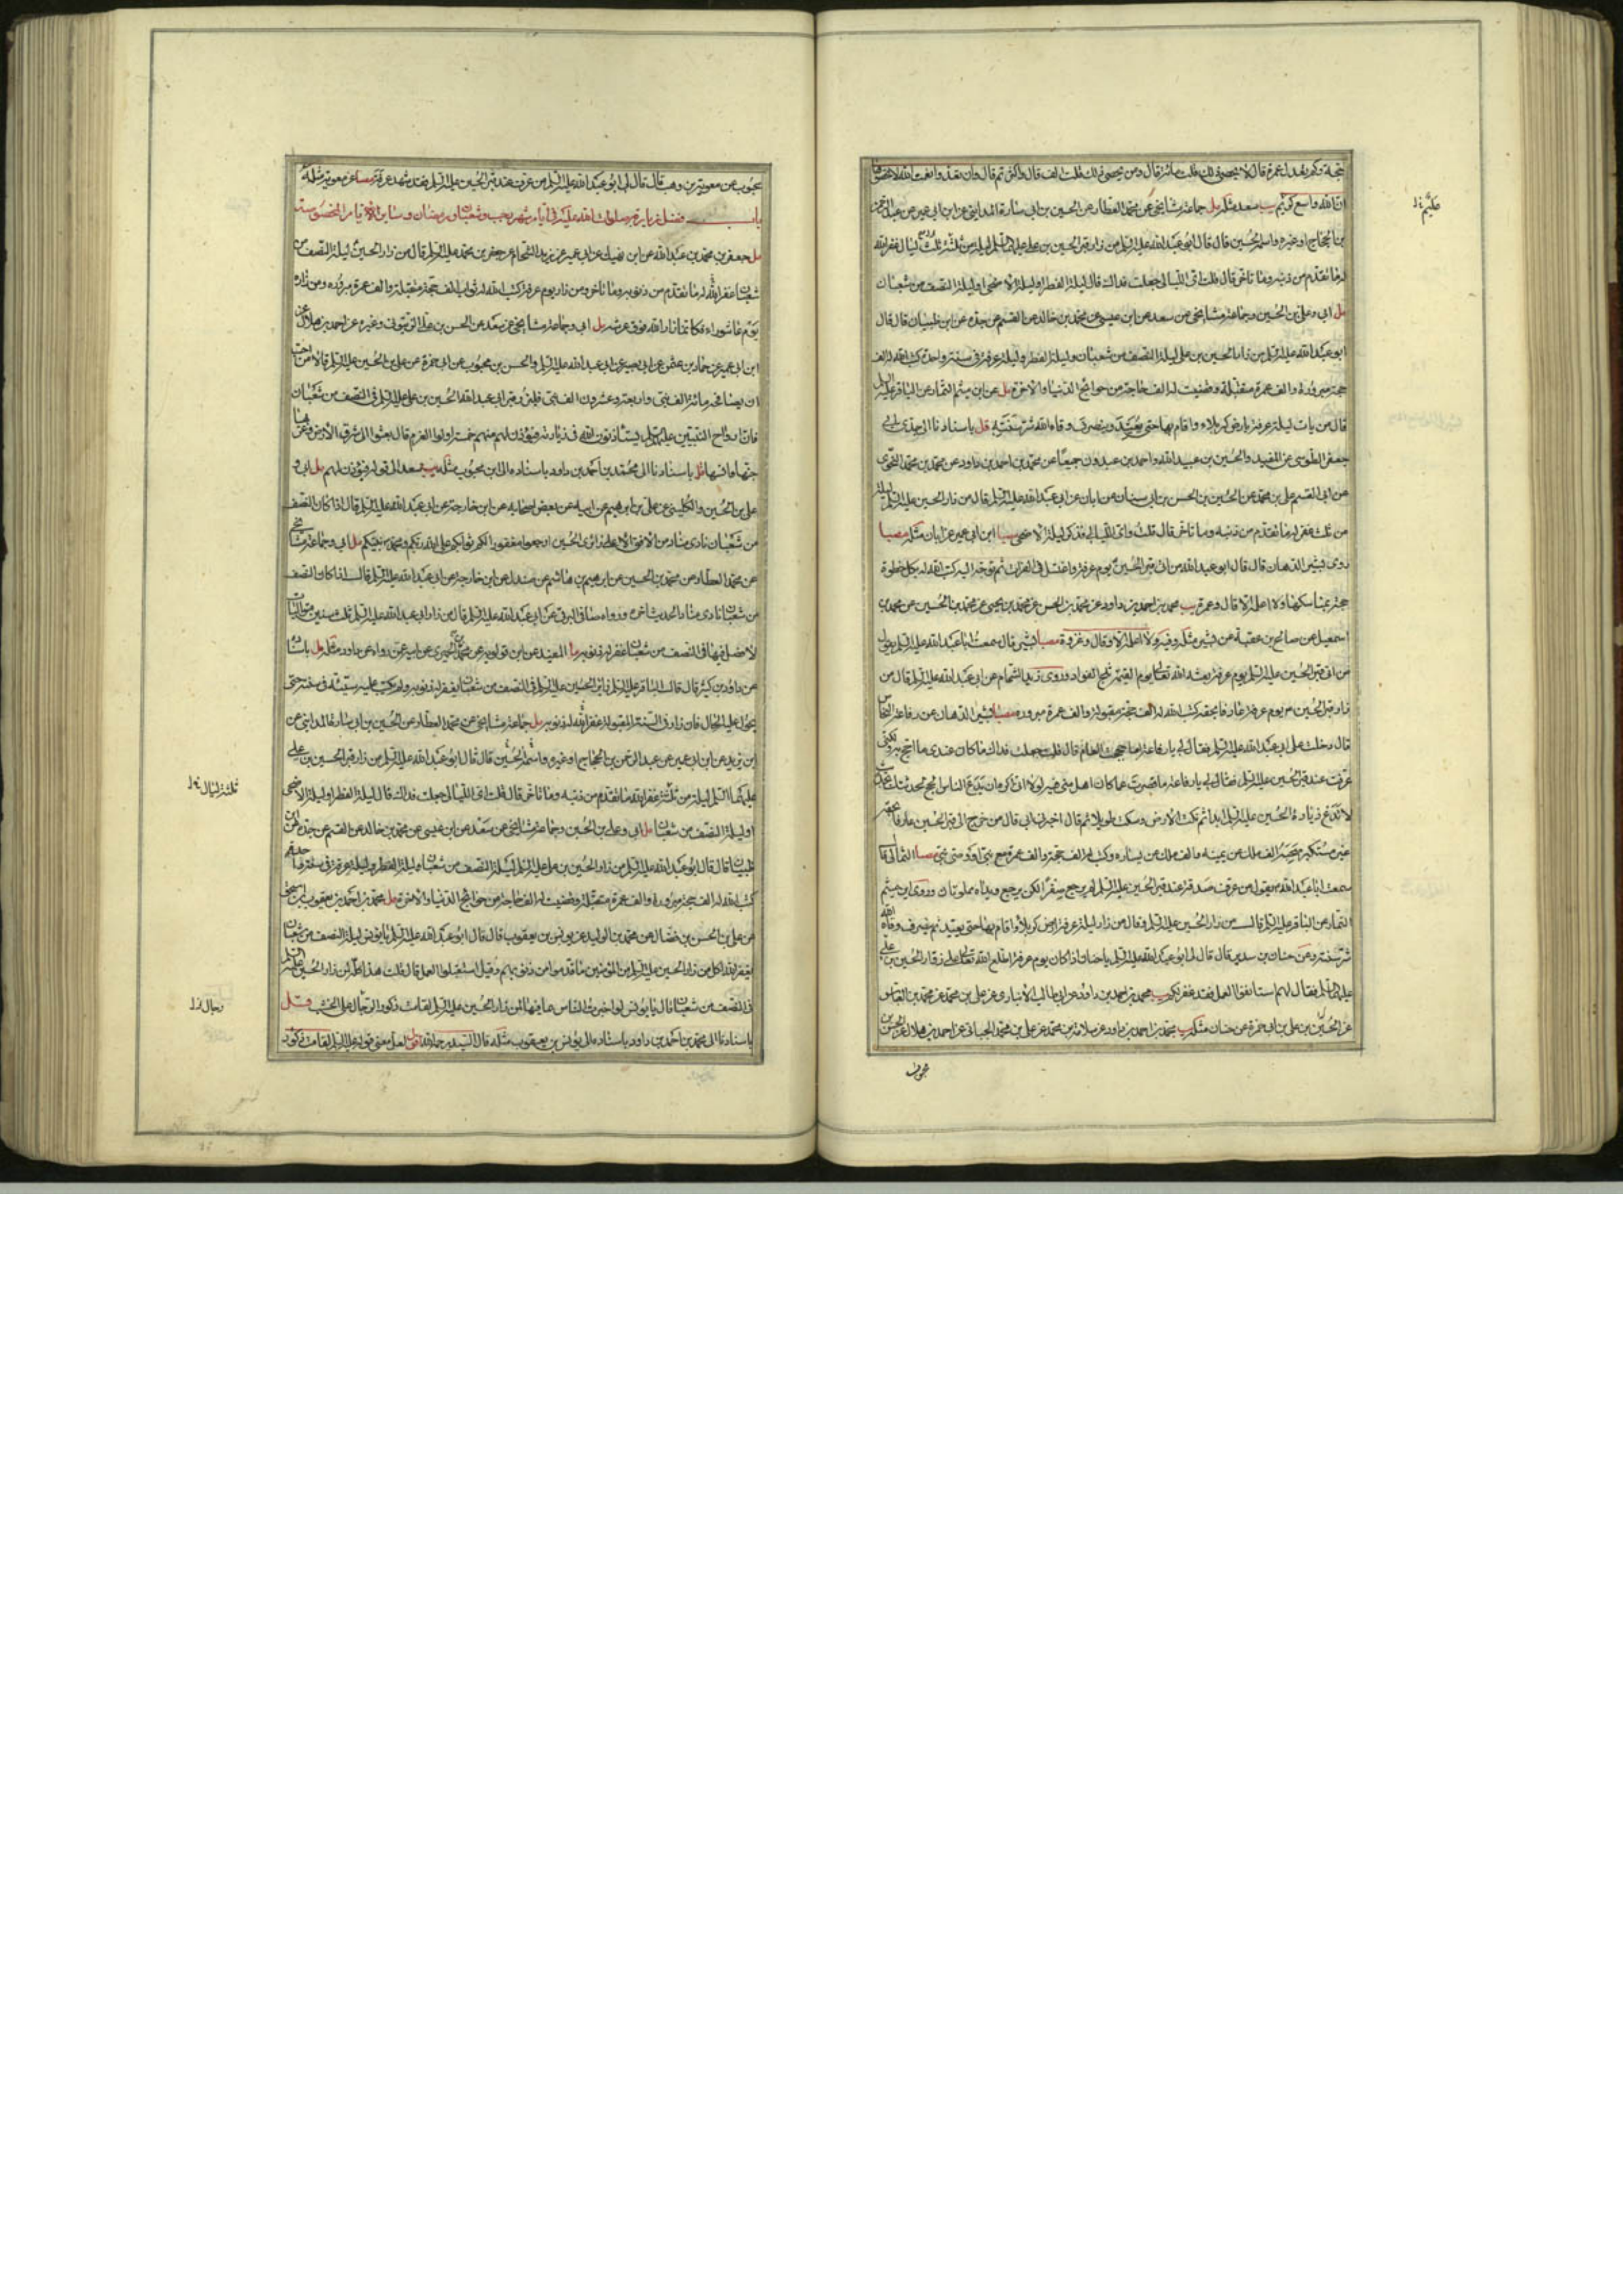 حجة وكم يعدل عمرة قال لا يحصى ذلك قلت مائة قال ومن يحصى ذلك قلت الف قال واكثر ثم قال وان تعدوا نعمة الله لا تحصوها
ان الله واسع كريم يب سعد مثله مل جماعة مشايخي عن محمد العطار عن الحسين بن ابي سارة المدايني عن ابن ابي عمير عن عبد الرحمن
بن الحجاج او غيره واسمه الحسين قال قال ابو عبد الله عليه السلم من زار قبر الحسين بن علي عليهما السلم ليلة من ثلث ليال غفر الله
له ما تقدم من ذنبه وما تاخر قال قلت اي الليالي جعلت فداك قال ليلة الفطر او ليلة الاضحى او ليلة النصف من شعبان
مل ابي وعلي بن الحسين وجماعة مشايخي عن سعد عن ابن عيسى عن محمد بن خالد عن القسم عن جده عن ابن ظبيان قال قال
ابو عبد الله عليه السلم من زار الحسين بن علي ليلة النصف من شعبان وليلة الفطر وليلة عرفة في سنة واحدة كتب الله له الف
حجة مبرورة والف عمرة متقبلة وقضيت له الف حاجة من حوائج الدنيا والاخرة مل عن ابن ميثم التمار عن الباقر عليه السلم
قال من بات ليلة عرفة بارض كربلاء واقام بها حتى يعيد وينصرف وقاه الله شر سنته قل باسنادنا الى جدي ابي
جعفر الطوسي عن المفيد والحسين بن عبيد الله واحمد بن عبدون جميعا عن محمد بن احمد بن داود عن محمد بن محمد النحوي
عن ابي القسم علي بن محمد عن الحسين بن الحسن بن ابي سنان عن ابان عن ابي عبد الله عليه السلم قال من زار الحسين عليه السلم ليلة
من ثلث غفر له ما تقدم من ذنبه وما تاخر قال قلت واي الليالي فذكر ليلة الاضحى مصبا ابن ابي عمير عن ابان مثله مصبا
روى بشير الدهان قال قال ابو عبد الله من اتى قبر الحسين يوم عرفة واغتسل في الفرات ثم توجه اليه كتب الله له بكل خطوة
حجة بمناسكها ولا اعلم الا قال وعمرة يب محمد بن احمد بن داود عن محمد بن الحسن عن محمد بن يحيى عن محمد بن الحسين عن محمد بن
اسمعيل عن صالح بن عقبة عن بشير مثله وفيه ولا اعلمه الا وقال وغزوة مصبا بشير قال سمعت ابا عبد الله عليه السلم يقول
من اتى قبر الحسين عليه السلم يوم عرفة بعثه الله تعالى يوم القيمة ثلج الفواد وروى زيد الشحام عن ابي عبد الله عليه السلم قال من
زار قبر الحسين عم يوم عرفة عارفا بحقه كتب الله له الف حجة مقبولة والف عمرة مبرورة مصبا بشير الدهان عن رفاعة النخاس
قال دخلت على ابي عبد الله عليه السلم فقال لي يا رفاعة اما حججت العام قال قلت جعلت فداك ما كان عندي ما احج به ولكني
عرفت عند قبر الحسين عليه السلم فقال لي يا رفاعة ما قصرت عما كان اهل منى فيه لولا اني اكره ان يدع الناس الحج لحدثتك بحديث
لا تدع زيارة الحسين عليه السلم ابدا ثم نكت الارض وسكت طويلا ثم قال اخبرني ابي قال من خرج الى قبر الحسين عارفا بحقه
غير مستكبر صحبه الف ملك عن يمينه والف ملك عن يساره وكتب له الف حجة والف عمرة مع نبي او وصي نبي مصبا الثمالي قال
سمعت ابا عبد الله يقول من عرف عند قبر الحسين عليه السلم لم يرجع صفرا لكن يرجع ويداه مملوتان وروى ابن ميثم
التمار عن الباقر عليه السلم قال من زار الحسين عليه السلم او قال من زار ليلة عرفة ارض كربلا واقام بها حتى يعيد ثم ينصرف وقاه الله
شر سنته وعن حنان بن سدير قال قال لي ابو عبد الله عليه السلم يا حنان اذا كان يوم عرفة اطلع الله تعالى على زوار الحسين بن علي
عليهما السلم فقال لهم استانفوا العمل فقد غفر لكم يب محمد بن احمد بن داود عن ابي طالب الانباري عن علي بن محمد عن محمد بن العباس
عن الحسين بن علي بن ابي حمزة عن حنان مثله يب محمد بن احمد بن داود عن سلامة بن محمد عن علي بن محمد الجبائي عن احمد بن هلال عن الحسن بن
محبوب
محبوب عن معوية بن وهب قال قال لي ابو عبد الله عليه السلم من عرف عند قبر الحسين عليه السلم فقد شهد عرفة مصبا عن معوية مثله
باب فضل زيارته صلوات الله عليه في ايام شهر رجب وشعبان ورمضان وساير الايام المخصوصة
مل جعفر بن محمد بن عبد الله عن ابن نهيك عن ابن ابي عمير عن زيد الشحام عن جعفر بن محمد عليه السلم قال من زار الحسين ليلة النصف من
شعبان غفر الله له ما تقدم من ذنوبه وما تاخر ومن زاره يوم عرفة كتب الله له ثواب الف حجة متقبلة والف عمرة مبرورة ومن زاره
يوم عاشوراء فكانما زار الله فوق عرشه مل ابي وجماعة مشايخي عن سعد عن الحسن بن علي الزيتوني وغيره عن احمد بن هلال عن
ابن ابي عمير عن حماد بن عثمن عن ابي بصير عن ابي عبد الله عليه السلم والحسن بن محبوب عن ابي حمزة عن علي بن الحسين عليه السلم قالا من احب
ان يصافحه مائة الف نبي واربعة وعشرون الف نبي فليزر قبر ابي عبد الله الحسين بن علي عليه السلم في النصف من شعبان
فان ارواح النبيين عليهم السلم يستاذنون الله في زيارته فيؤذن لهم منهم خمسة اولوا العزم قال بعثوا الى شرق الارض وغربها
جنها وانسها قل باسنادنا الى محمد بن احمد بن داود باسناده الى ابن محبوب مثله يب سعد الى قوله فيؤذن لهم مل ابي و
علي بن الحسين والكليني عن علي بن ابرهيم عن ابيه عن بعض اصحابه عن ابن خارجة عن ابي عبد الله عليه السلم قال اذا كان النصف
من شعبان نادى مناد من الافق الاعلى زائري الحسين ارجعوا مغفورا لكم ثوابكم على الله ربكم ومحمد نبيكم مل ابي وجماعة مشايخي
عن محمد العطار عن محمد بن الحسين عن ابرهيم بن هاشم عن صندل عن ابن خارجة عن ابي عبد الله عليه السلم قال اذا كان النصف
من شعبان نادى مناد الحديث اخره ورواه صافي البرقي عن ابي عبد الله عليه السلم قال من زار ابي عبد الله عليه السلم ثلث سنين متواليات
لا فصل فيها في النصف من شعبان غفر له ذنوبه ما المفيد عن ابن قولويه عن محمد الحميري عن ابيه عمن رواه عن داود مثله مل باسناده
عن داود بن كثير قال قال الباقر عليه السلم زائر الحسين عليه السلم في النصف من شعبان يغفر له ذنوبه ولم يكتب عليه سيئة في سنته حتى
يحول عليه الحال فان زار في السنة المقبولة غفر الله له ذنوبه مل جماعة مشايخي عن محمد العطار عن الحسين بن ابي سارة المدايني عن
ابن يزيد عن ابن ابي عمير عن عبد الرحمن بن الحجاج او غيره واسمه الحسين قال قال ابو عبد الله عليه السلم من زار قبر الحسين بن علي
عليهما السلم ليلة من ثلثة غفر الله ما تقدم من ذنبه وما تاخر قال قلت اي الليالي جعلت فداك قال ليلة الفطر او ليلة الاضحى
او ليلة النصف من شعبان مل ابي وعلي بن الحسين وجماعة مشايخي عن سعد عن ابن عيسى عن محمد بن خالد عن القسم عن جده عن ابن
ظبيان قال قال ابو عبد الله عليه السلم من زار الحسين بن علي عليه السلم ليلة النصف من شعبان وليلة الفطر وليلة عرفة في سنة واحدة
كتب الله له الف حجة مبرورة والف عمرة متقبلة وقضيت له الف حاجة من حوائج الدنيا والاخرة مل محمد بن احمد بن يعقوب بن اسحق
عن علي بن الحسن بن فضال عن محمد بن الوليد عن يونس بن يعقوب قال قال ابو عبد الله عليه السلم يا يونس ليلة النصف من شعبان
يغفر الله لكل من زار الحسين عليه السلم من المؤمنين ما قدموا من ذنوبهم وقيل استقبلوا العمل قال قلت هذا كله لمن زار الحسين عليه السلم
في النصف من شعبان قال يا يونس لو اخبرت الناس بما فيها لمن زار الحسين عليه السلم لقامت ذكور الرجال على الخشب قل
باسنادنا الى محمد بن احمد بن داود باسناده الى يونس بن يعقوب مثله قال السيد رحمه الله اقول لعل معنى قوله عليه السلم لقامت ذكور